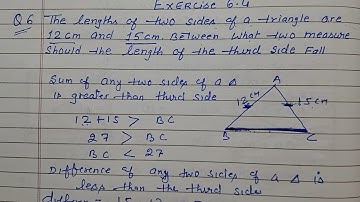 EXERCISE 6.4
Q6 The lengths of two sides of a triangle are
12 cm and 15 cm. Between what two measure
should the length of the third side fall
Sum of any two sides of a Δ
is greater than third side
A
12 cm
15 cm
B
C
12+15 > BC
27 > BC
BC < 27
Difference of any two sides of a Δ is
less than the third side